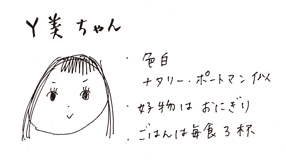 Y美ちゃん
・色白
ナタリー・ポートマン似
・好物はおにぎり
・ごはんは毎食3杯